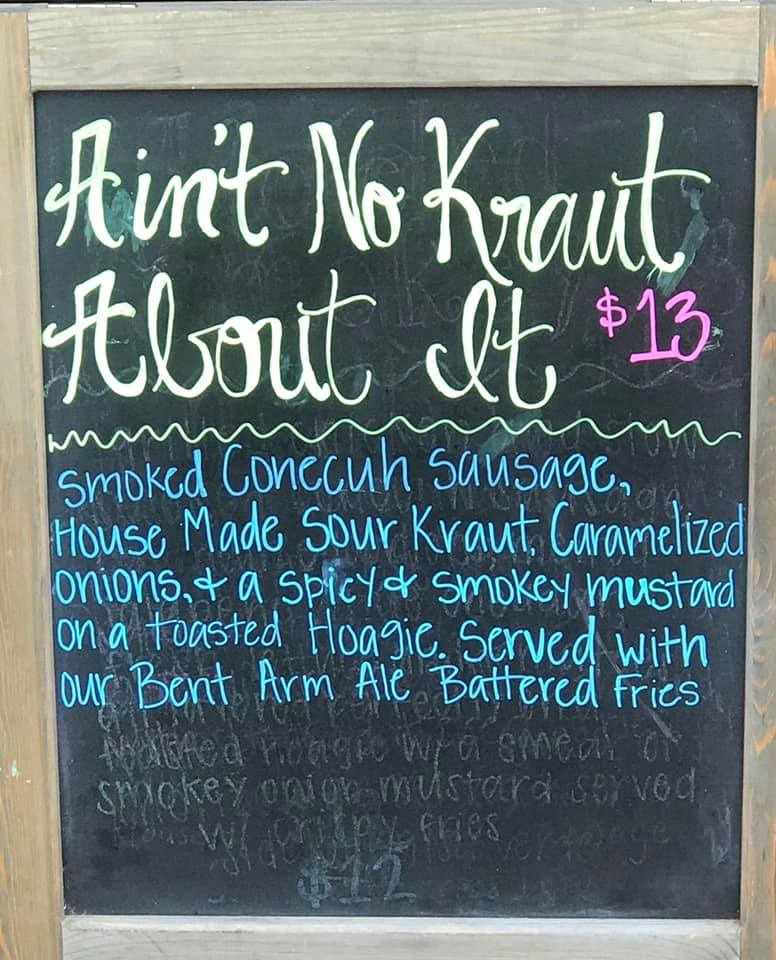 Ain't No Kraut
About It $13
Smoked Conecuh Sausage,
House Made Sour Kraut, Caramelized
onions, & a spicy & smokey mustard
on a toasted Hoagie. Served with
our Bent Arm Ale Battered Fries
toasted hoagie w/ a smear of
smokey onion mustard served
w/ crispy fries
$12